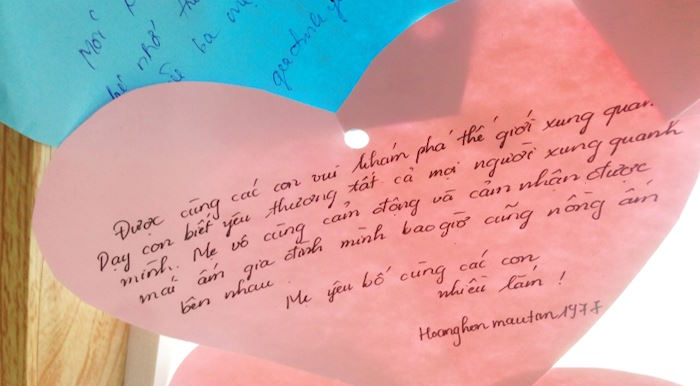 Mỗi
nhớ
ba mẹ
gia đình
Được cùng các con vui khám phá thế giới xung quan.
Dạy con biết yêu thương tất cả mọi người xung quanh
mình. Mẹ vô cùng cảm động và cảm nhận được
mái ấm gia đình mình bao giờ cũng nồng ấm
bên nhau.
Mẹ yêu bố cùng các con
nhiều lắm!
Hoanghonmautim1977